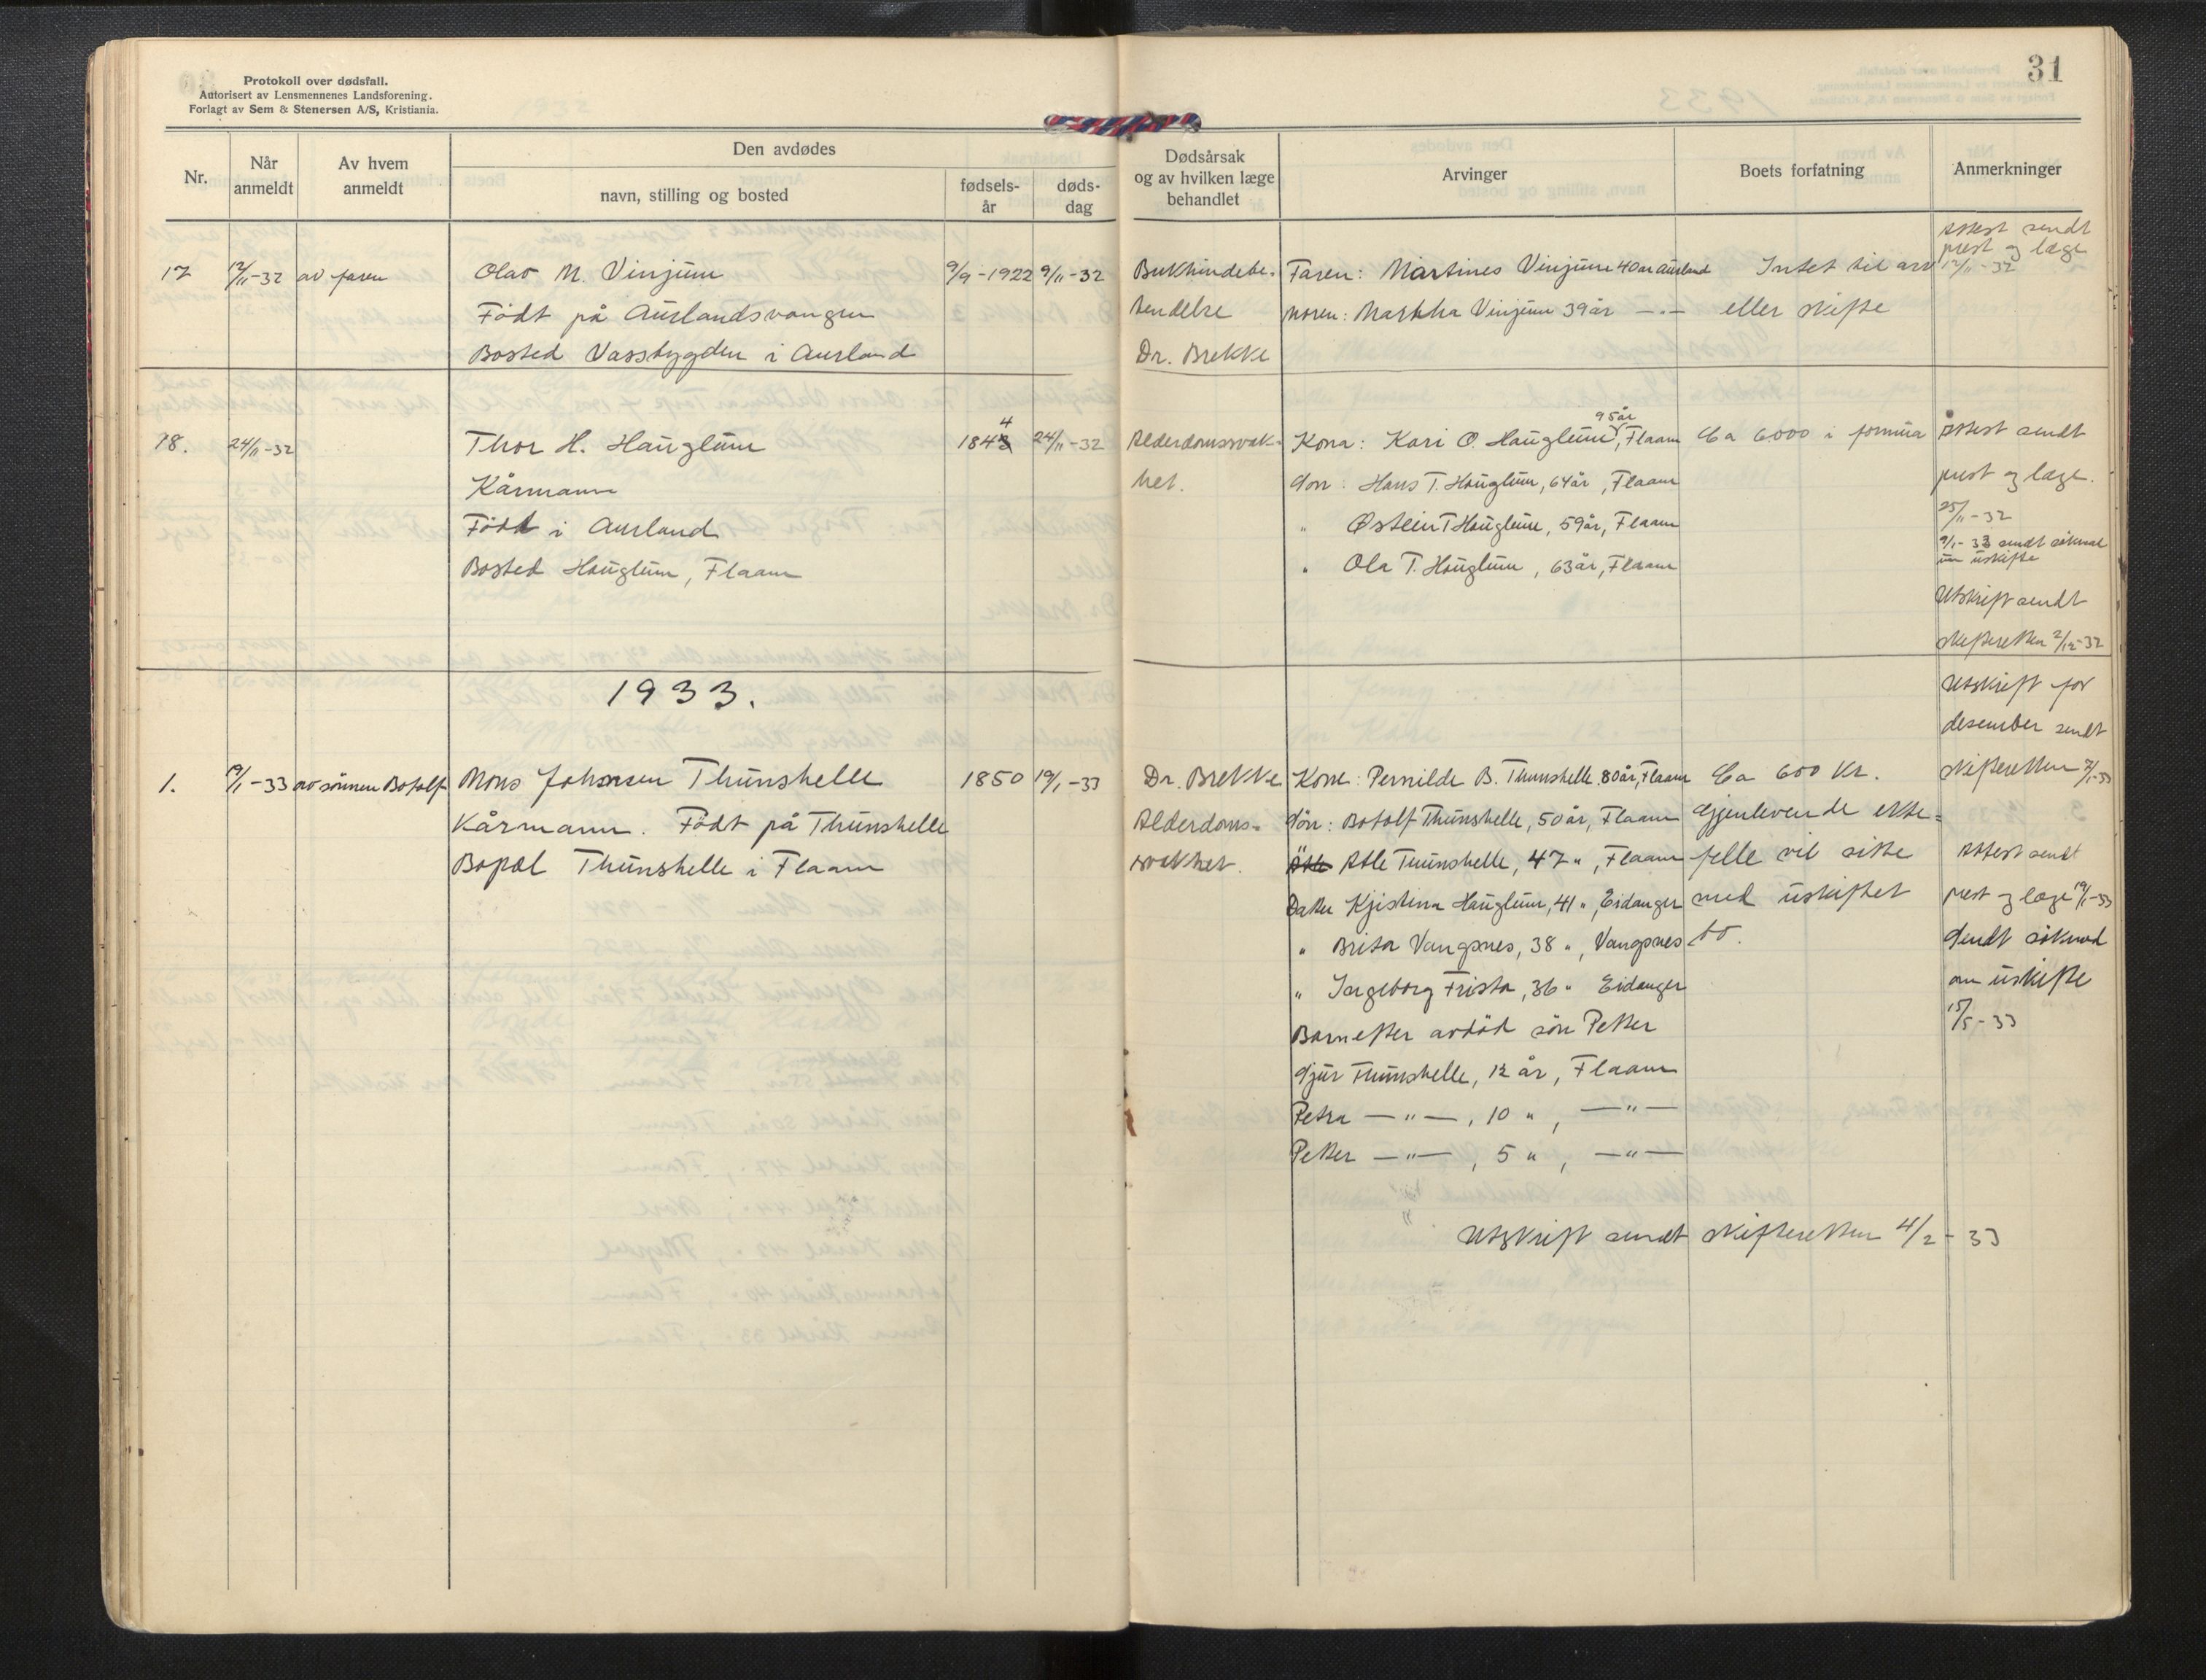 Protokoll over dødsfall.
Autorisert av Lensmennenes Landsforening.
Forlagt av Sem & Stenersen A/S, Kristiania.
31
Nr.
Når anmeldt
Av hvem anmeldt
Den avdødes
navn, stilling og bosted
fødsels-år
døds-dag
Dødsårsak og av hvilken læge behandlet
Arvinger
Boets forfatning
Anmerkninger
17
12/11-32
av faren
Olav M. Vinjum
Födt på Aurlandsvangen
Bosted Vassbygden i Aurland
9/9-1922
9/11-32
Bukhindebe-
tendelse
Dr. Brekke
Faren: Martines Vinjum 40 år Aurland
Moren: Martha Vinjum 39 år —„—
Intet til arv
eller skifte
Attest sendt
prest og læge
12/11-32
18.
24/11-32
Thor H. Hauglum
Kårmann
Födt i Aurland
Bosted Hauglum, Flaam
1844
24/11-32
Alderdomssvak-
het.
Kona: Kari O. Hauglum, 95 år, Flaam
Sön: Hans T. Hauglum, 64 år, Flaam
„ Østein T Hauglum, 59 år, Flaam
„ Ola T. Hauglum, 63 år, Flaam
Ca 6000 i formua
Attest sendt
prest og læge.
25/11-32
9/1-33 sendt söknad
um uskifte
Utskrift sendt
skifteretten 2/12-32
1933.
Utskrift for
desember sendt
skifteretten 2/1-33
1.
19/1-33
av sönnen Botolf
Mons Johnsen Thunshelle
Kårmann. Födt på Thunshelle
Bopæl Thunshelle i Flaam
1850
19/1-33
Dr. Brekke
Alderdoms-
svakhet.
Kone: Pernilde B. Thunshelle 80 år, Flaam
Sön: Botolf Thunshelle, 50 år, Flaam
Atle Thunshelle, 47 „, Flaam
Datter Kjistina Hauglum, 41 „, Eidanger
„ Brita Vangsnes, 38 „, Vangsnes
„ Ingeborg Frista, 36 „ Eidanger
Barn efter avdöd sön Petter
Sjur Thunshelle, 12 år, Flaam
Petra —„—, 10 „, —„—
Petter —„—, 5 „, —„—
Ca 600 kr.
Gjenlevende ekte-
felle vil sitte
med uskiftet
bo.
Attest sendt
prest og læge 19/1-33
Sendt söknad
om uskifte
15/5-33
Utskrift sendt skifteretten 4/2-33